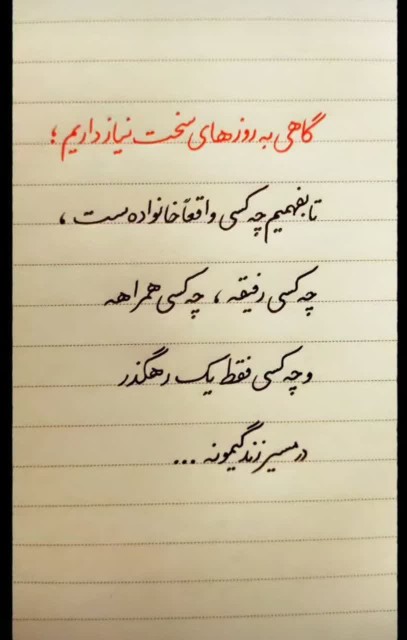 گاهی به روزهای سخت نیاز داریم ؛
تا بفهمیم چه کسی واقعاً خانواده ست ،
چه کسی رفیقه ، چه کسی همراهه
و چه کسی فقط یک رهگذر
در مسیر زندگیمونه ...